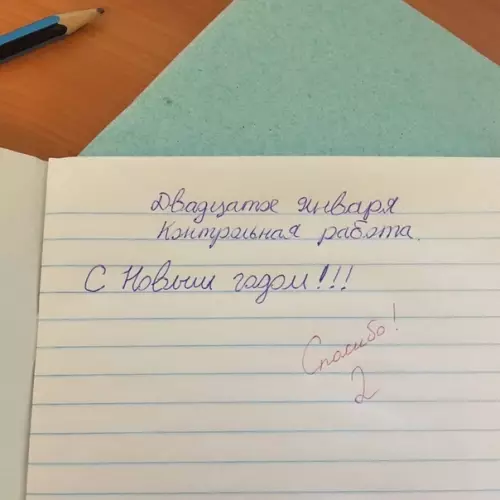 Двадцатое января
Контрольная работа.
С Новым годом!!!
Спасибо!
2